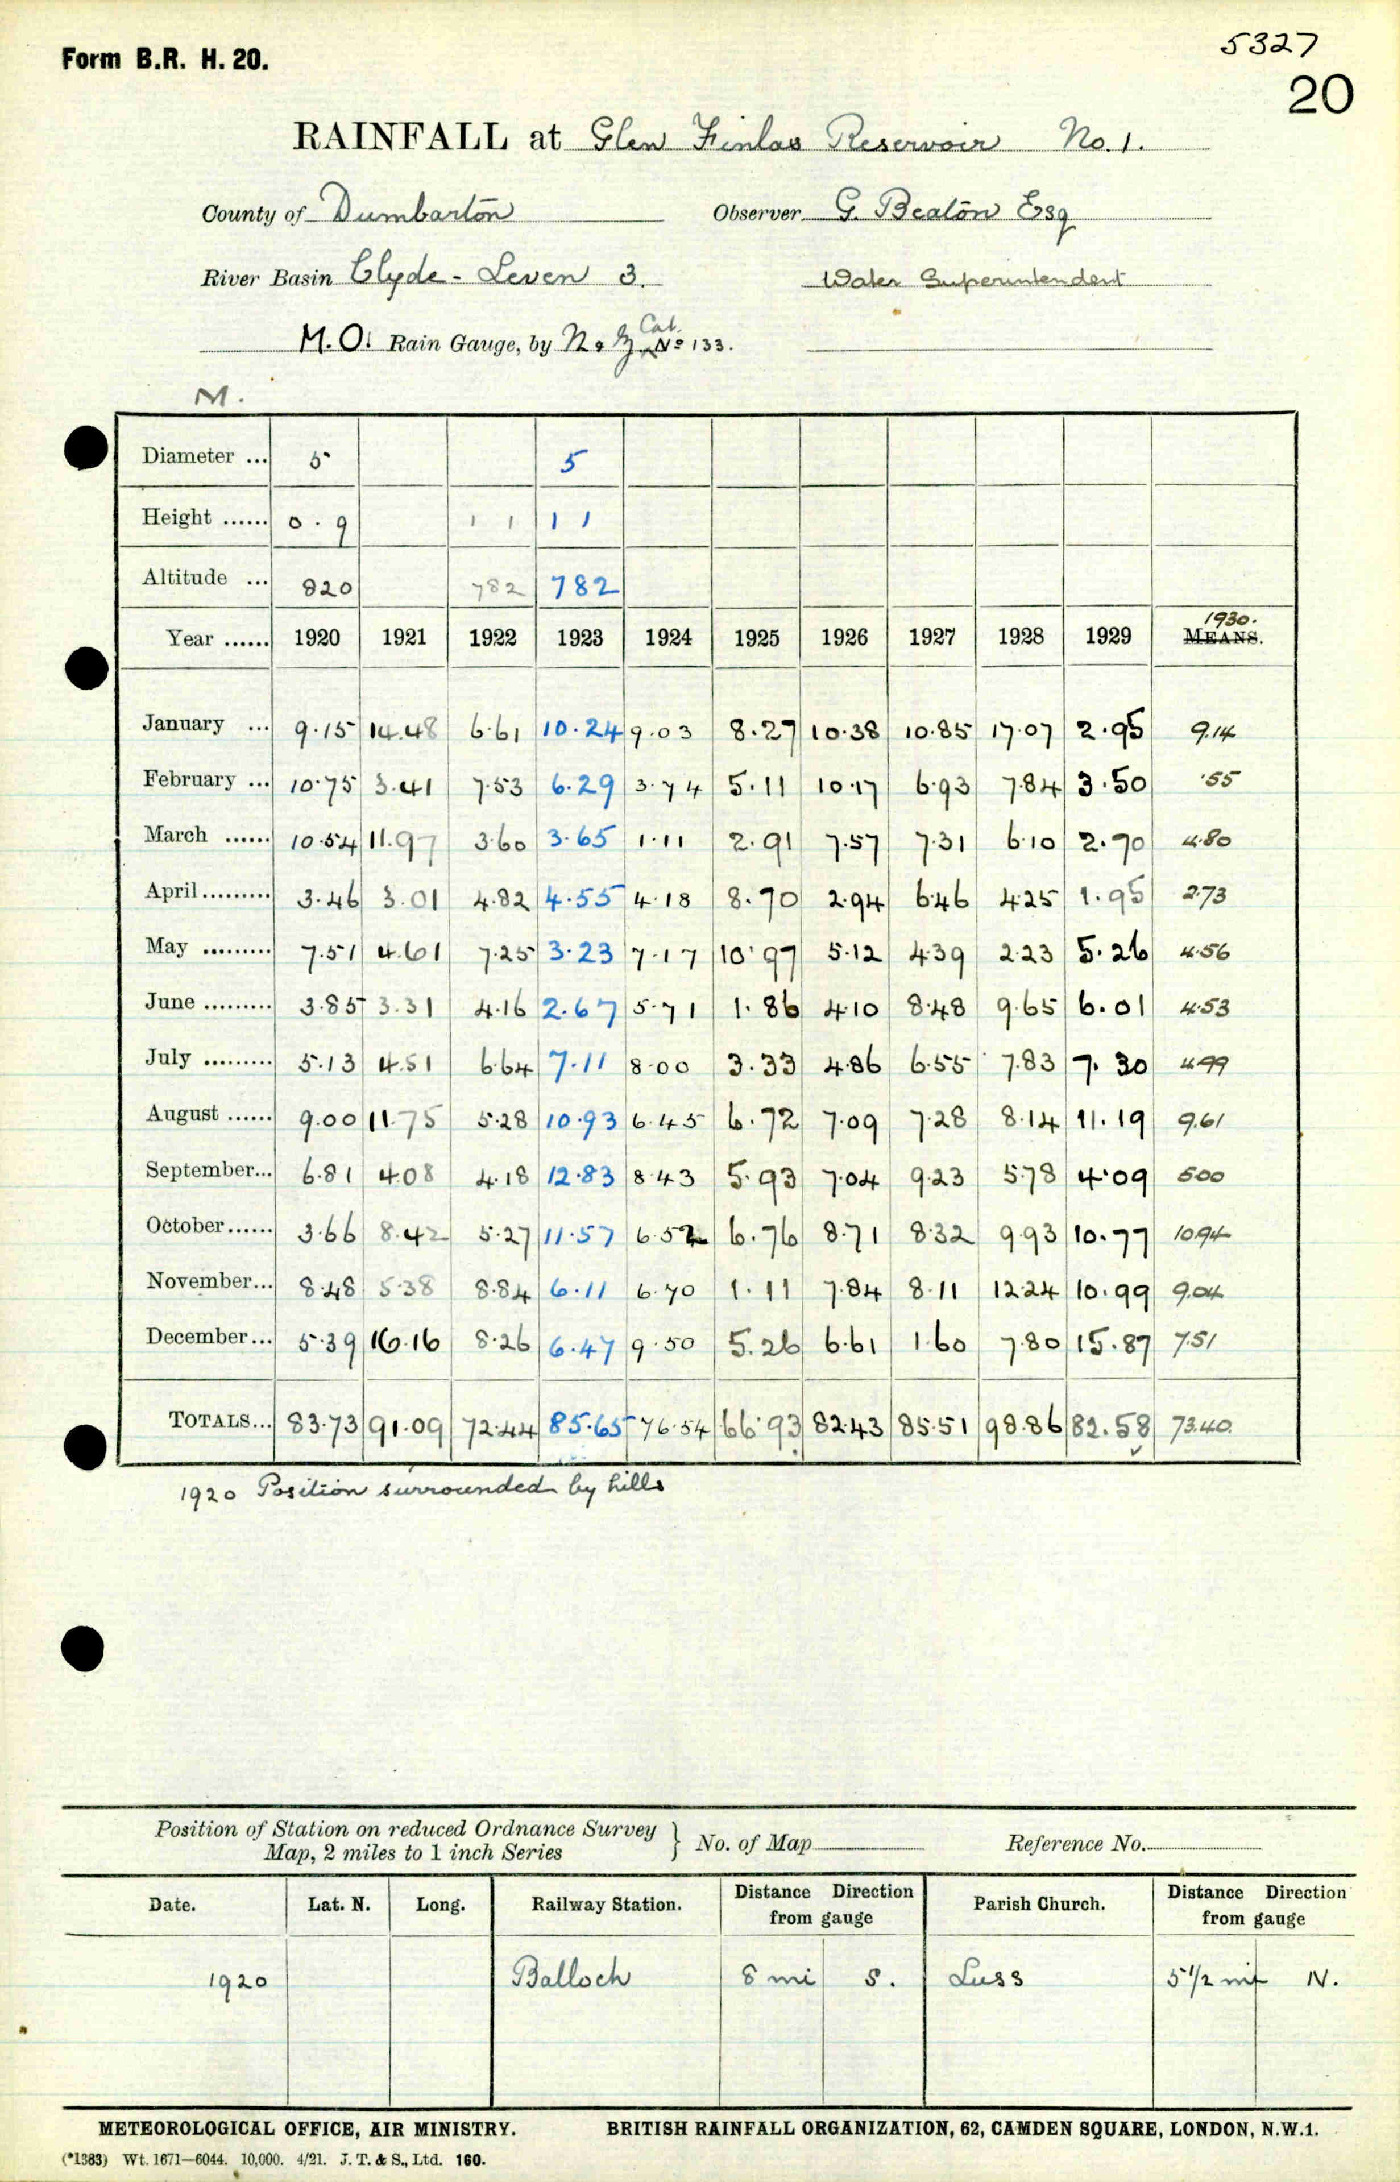 5327
Form B.R. H. 20.
20
RAINFALL at Glen Finlas Reservoir No. 1.
County of Dumbarton Observer G. Beaton Esq
River Basin Clyde - Leven 3. Water Superintendent
Cat.
M.O. Rain Gauge, by N. & Z. No 133.
M.
Diameter ... 5 5
Height ...... 0 . 9 1 1 1 1
Altitude ... 820 782 782
1930.
Year ...... 1920 1921 1922 1923 1924 1925 1926 1927 1928 1929 MEANS.
January ... 9.15 14.48 6.61 10.24 9.03 8.27 10.38 10.85 17.07 2.95 9.14
February ... 10.75 3.41 7.53 6.29 3.74 5.11 10.17 6.93 7.84 3.50 .55
March ...... 10.54 11.97 3.60 3.65 1.11 2.91 7.57 7.31 6.10 2.70 4.80
April ......... 3.46 3.01 4.82 4.55 4.18 8.70 2.94 6.46 4.25 1.95 2.73
May ......... 7.51 4.61 7.25 3.23 7.17 10.97 5.12 4.39 2.23 5.26 4.56
June ......... 3.85 3.31 4.16 2.67 5.71 1.86 4.10 8.48 9.65 6.01 4.53
July ......... 5.13 4.51 6.64 7.11 8.00 3.33 4.86 6.55 7.83 7.30 4.99
August ...... 9.00 11.75 5.28 10.93 6.45 6.72 7.09 7.28 8.14 11.19 9.61
September... 6.81 4.08 4.18 12.83 8.43 5.93 7.04 9.23 5.78 4.09 5.00
October...... 3.66 8.42 5.27 11.57 6.52 6.76 8.71 8.32 9.93 10.77 10.94
November... 8.48 5.38 8.84 6.11 6.70 1.11 7.84 8.11 12.24 10.99 9.04
December... 5.39 16.16 8.26 6.47 9.50 5.26 6.61 1.60 7.80 15.87 7.51
TOTALS... 83.73 91.09 72.44 85.65 76.54 66.93 82.43 85.51 98.86 82.58 73.40
1920 Position surrounded by hills
Position of Station on reduced Ordnance Survey Map, 2 miles to 1 inch Series } No. of Map Reference No.
Date. Lat. N. Long. Railway Station. Distance Direction from gauge Parish Church. Distance Direction from gauge
1920 Balloch 8 mi S. Luss 5 1/2 mi N.
METEOROLOGICAL OFFICE, AIR MINISTRY. BRITISH RAINFALL ORGANIZATION, 62, CAMDEN SQUARE, LONDON, N.W.1.
(*1383) Wt. 1671—6044. 10,000. 4/21. J. T. & S., Ltd. 160.